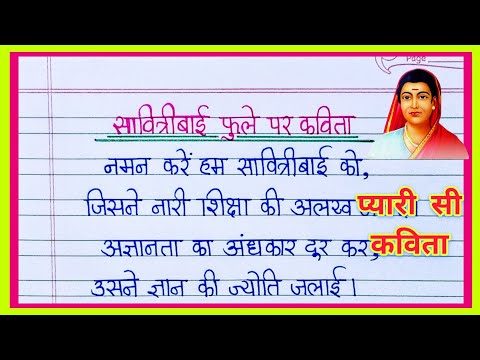 Page
सावित्रीबाई फुले पर कविता
नमन करें हम सावित्रीबाई को,
जिसने नारी शिक्षा की अलख
अज्ञानता का अंधकार दूर कर,
उसने ज्ञान की ज्योति जलाई।
प्यारी सी
कविता